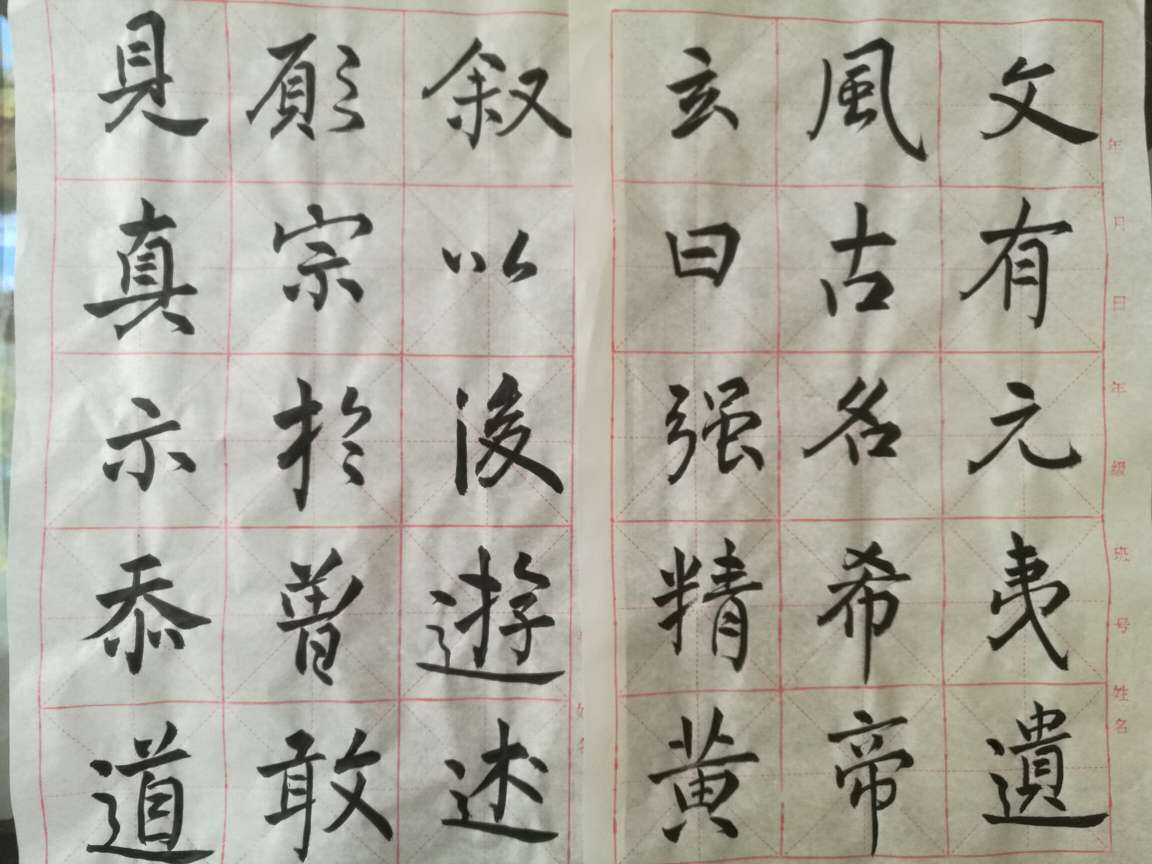 年 月 日 年级 班 号 姓名
文有元夷遺
風古名希帝
玄曰强精黄
叙以後遊述
宗於曽敢
見真示忝道